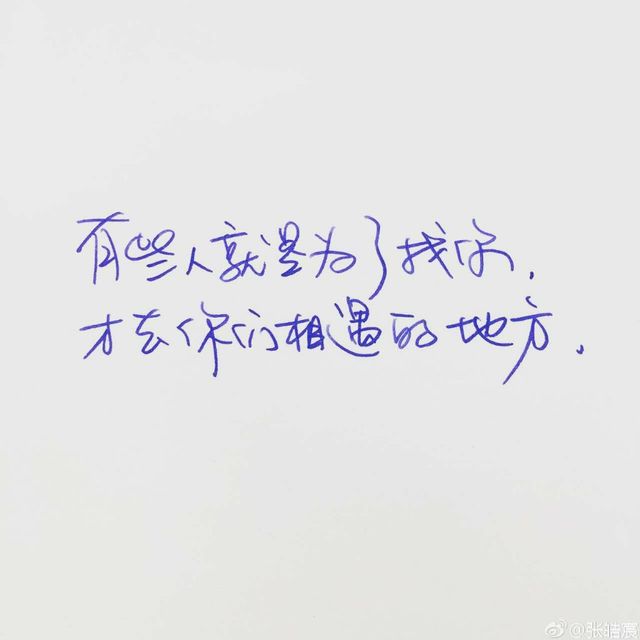 有些人就是为了找你，
才去你们相遇的地方．
@张皓宸